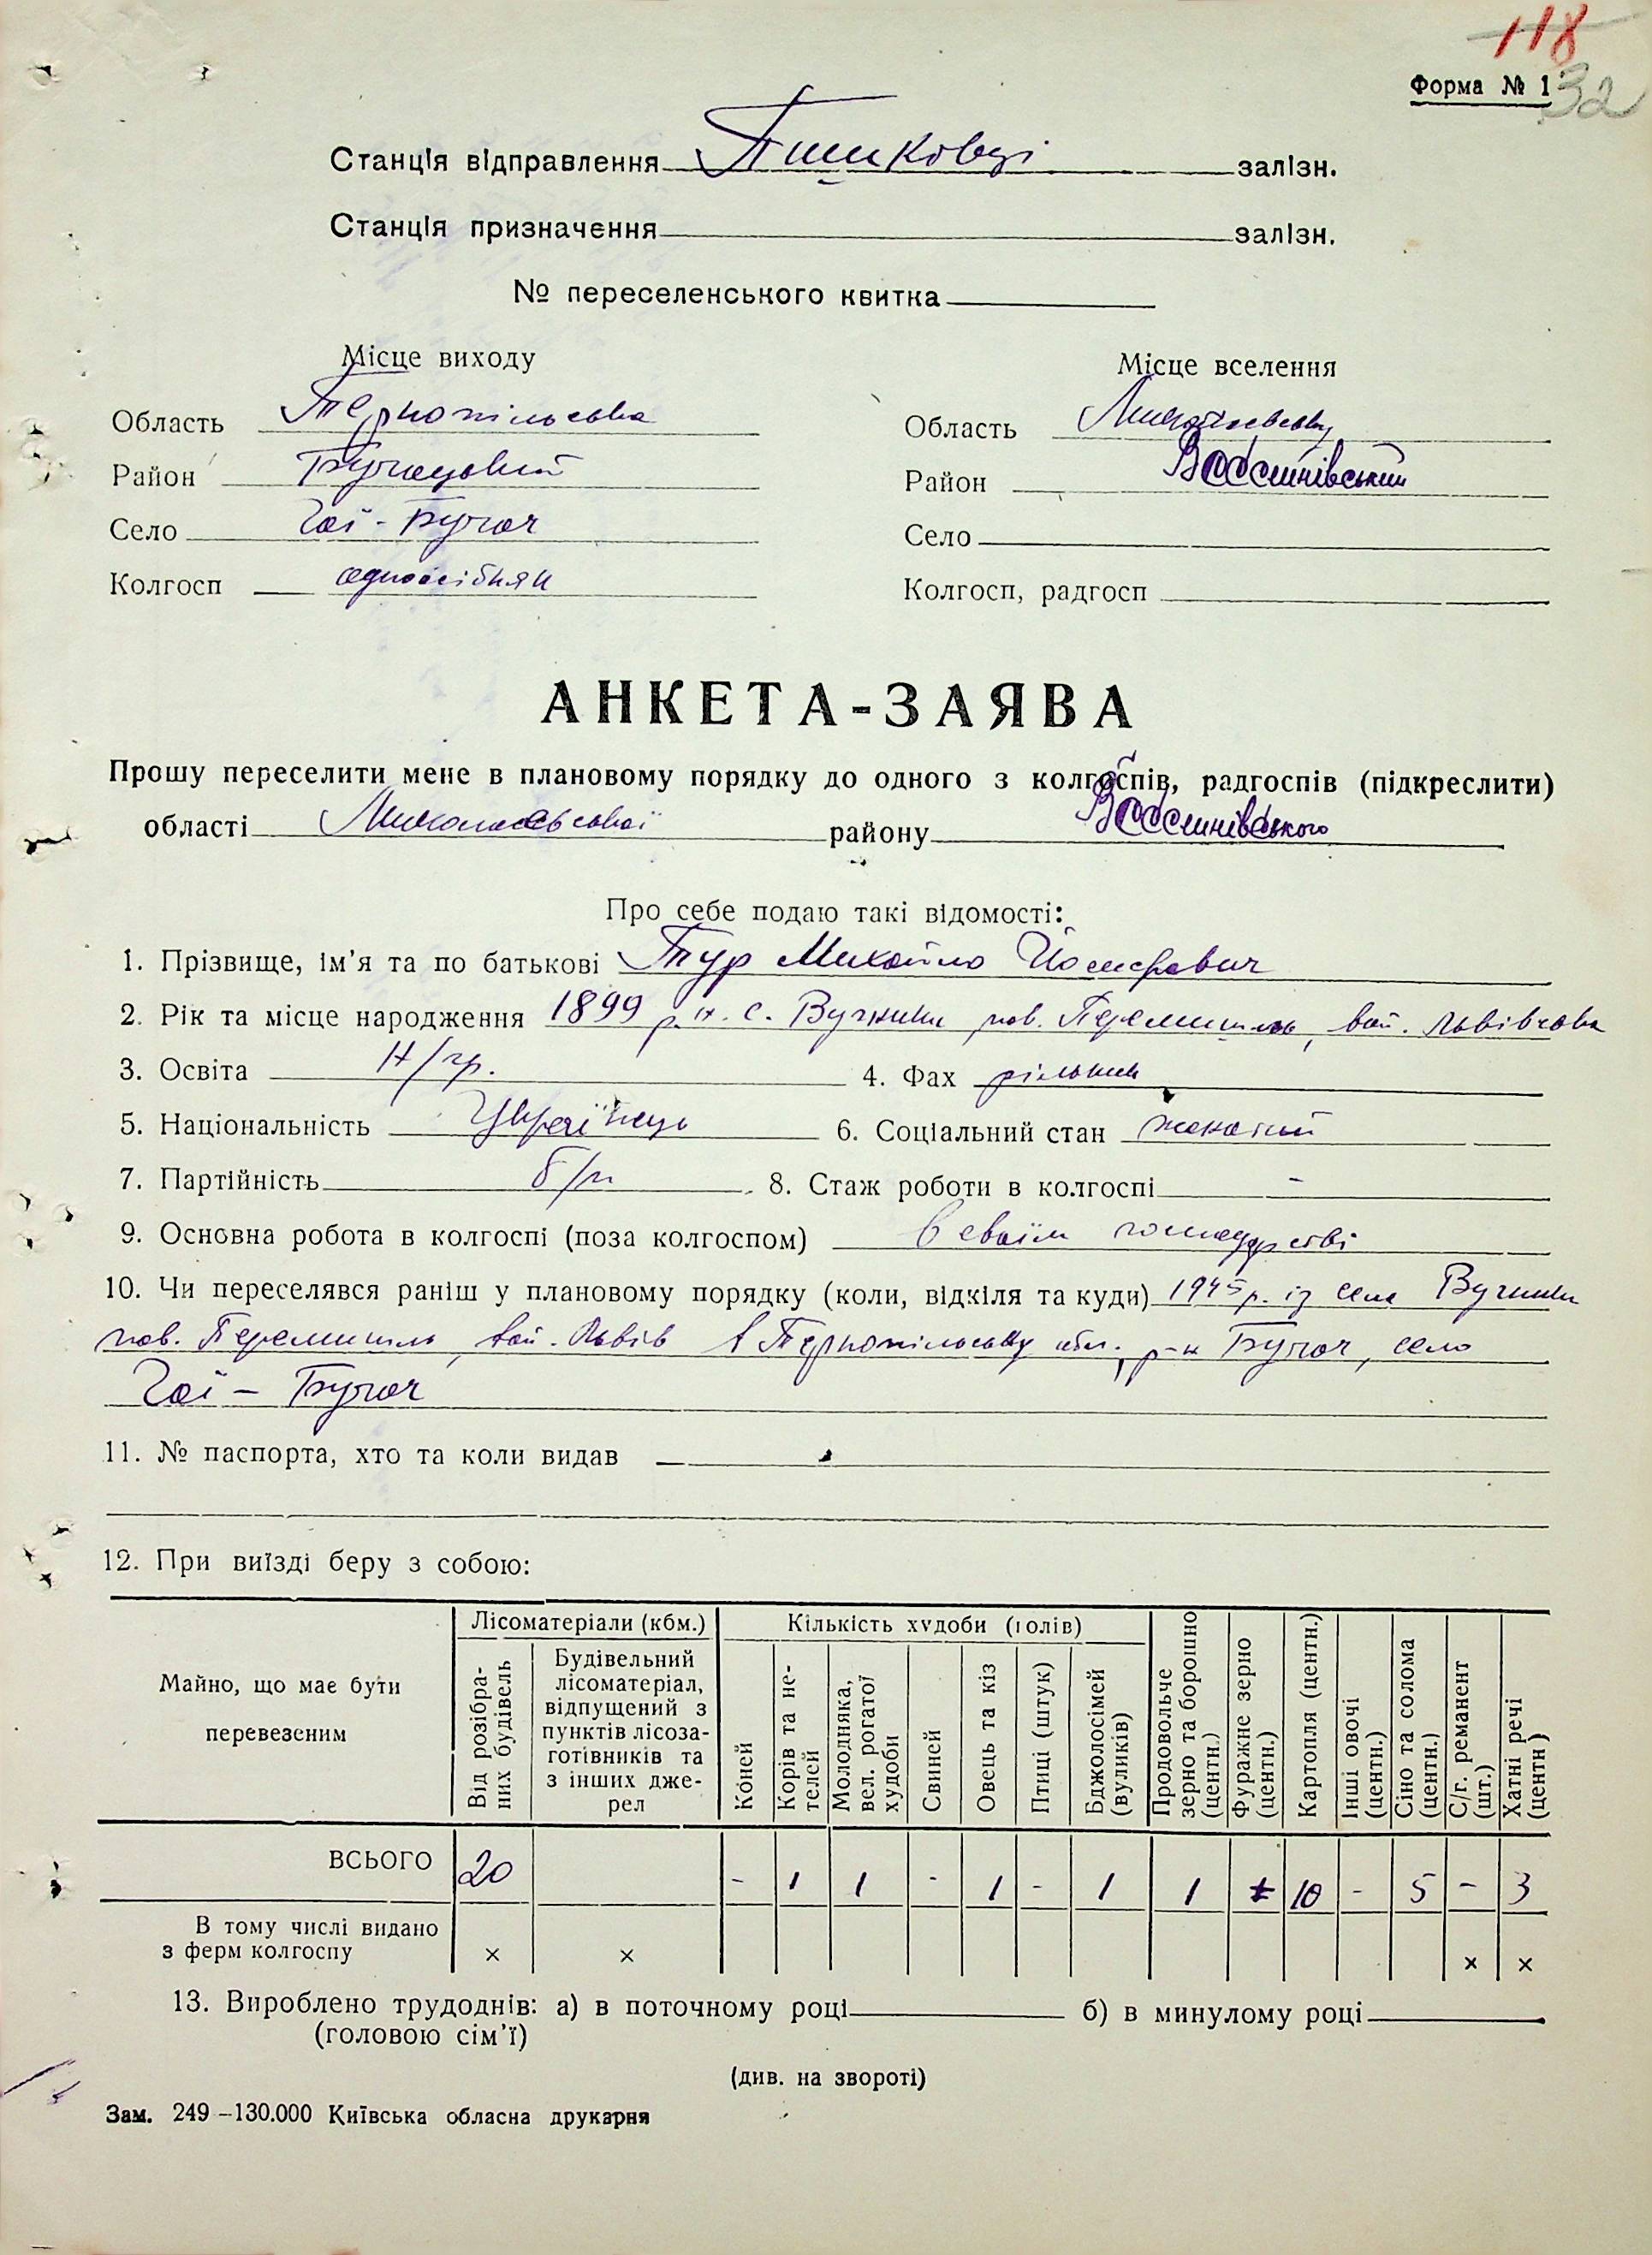 118
Форма № 1
32
Станція відправлення Пишковці залізн.
Станція призначення залізн.
№ переселенського квитка
Місце виходу Місце вселення
Область Тернопільська Область Миколаївську
Район Бучацький Район
Село Гаї - Бучач Село
Колгосп одноосібняк Колгосп, радгосп
АНКЕТА-ЗАЯВА
Прошу переселити мене в плановому порядку до одного з колгоспів, радгоспів (підкреслити)
області Миколаєвської району
Про себе подаю такі відомості:
1. Прізвище, ім'я та по батькові Тур Михайло Йосифович
2. Рік та місце народження 1899 р.н. с. Вучники пов. Перемишль, вої. Львівська
3. Освіта Н/гр. 4. Фах рільник
5. Національність Українець 6. Соціальний стан жонатий
7. Партійність б/п 8. Стаж роботи в колгоспі -
9. Основна робота в колгоспі (поза колгоспом) в своїм господарстві
10. Чи переселявся раніш у плановому порядку (коли, відкіля та куди) 1945 р. із села Вучники
пов. Перемишль, вої. Львів в Тернопільську обл., р-н Бучач, село
Гаї - Бучач
11. № паспорта, хто та коли видав —
12. При виїзді беру з собою:
Майно, що має бути перевезеним
Лісоматеріали (кбм.)
Від розібраних будівель
Будівельний лісоматеріал, відпущений з пунктів лісозаготівників та з інших джерел
Кількість худоби (голів)
Коней
Корів та нетелей
Молодняка, вел. рогатої худоби
Свиней
Овець та кіз
Птиці (штук)
Бджолосімей (вуликів)
Продовольче зерно та борошно (центн.)
Фуражне зерно (центн.)
Картопля (центн.)
Інші овочі (центн.)
Сіно та солома (центн.)
С/г. реманент (шт.)
Хатні речі (центн)
ВСЬОГО 20 - 1 1 - 1 - 1 1 10 - 5 - 3
В тому числі видано
з ферм колгоспу × × × ×
13. Вироблено трудоднів: а) в поточному році б) в минулому році
(головою сім'ї)
(див. на звороті)
Зам. 249-130.000 Київська обласна друкарня